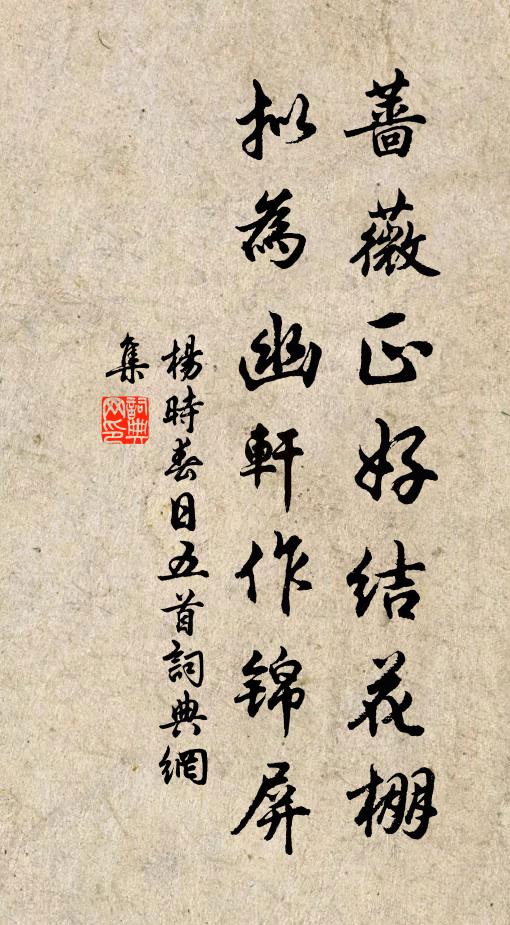 薔薇正好結花棚
拟為幽軒作錦屏
楊時春日五首詞典網
集
詞典网印